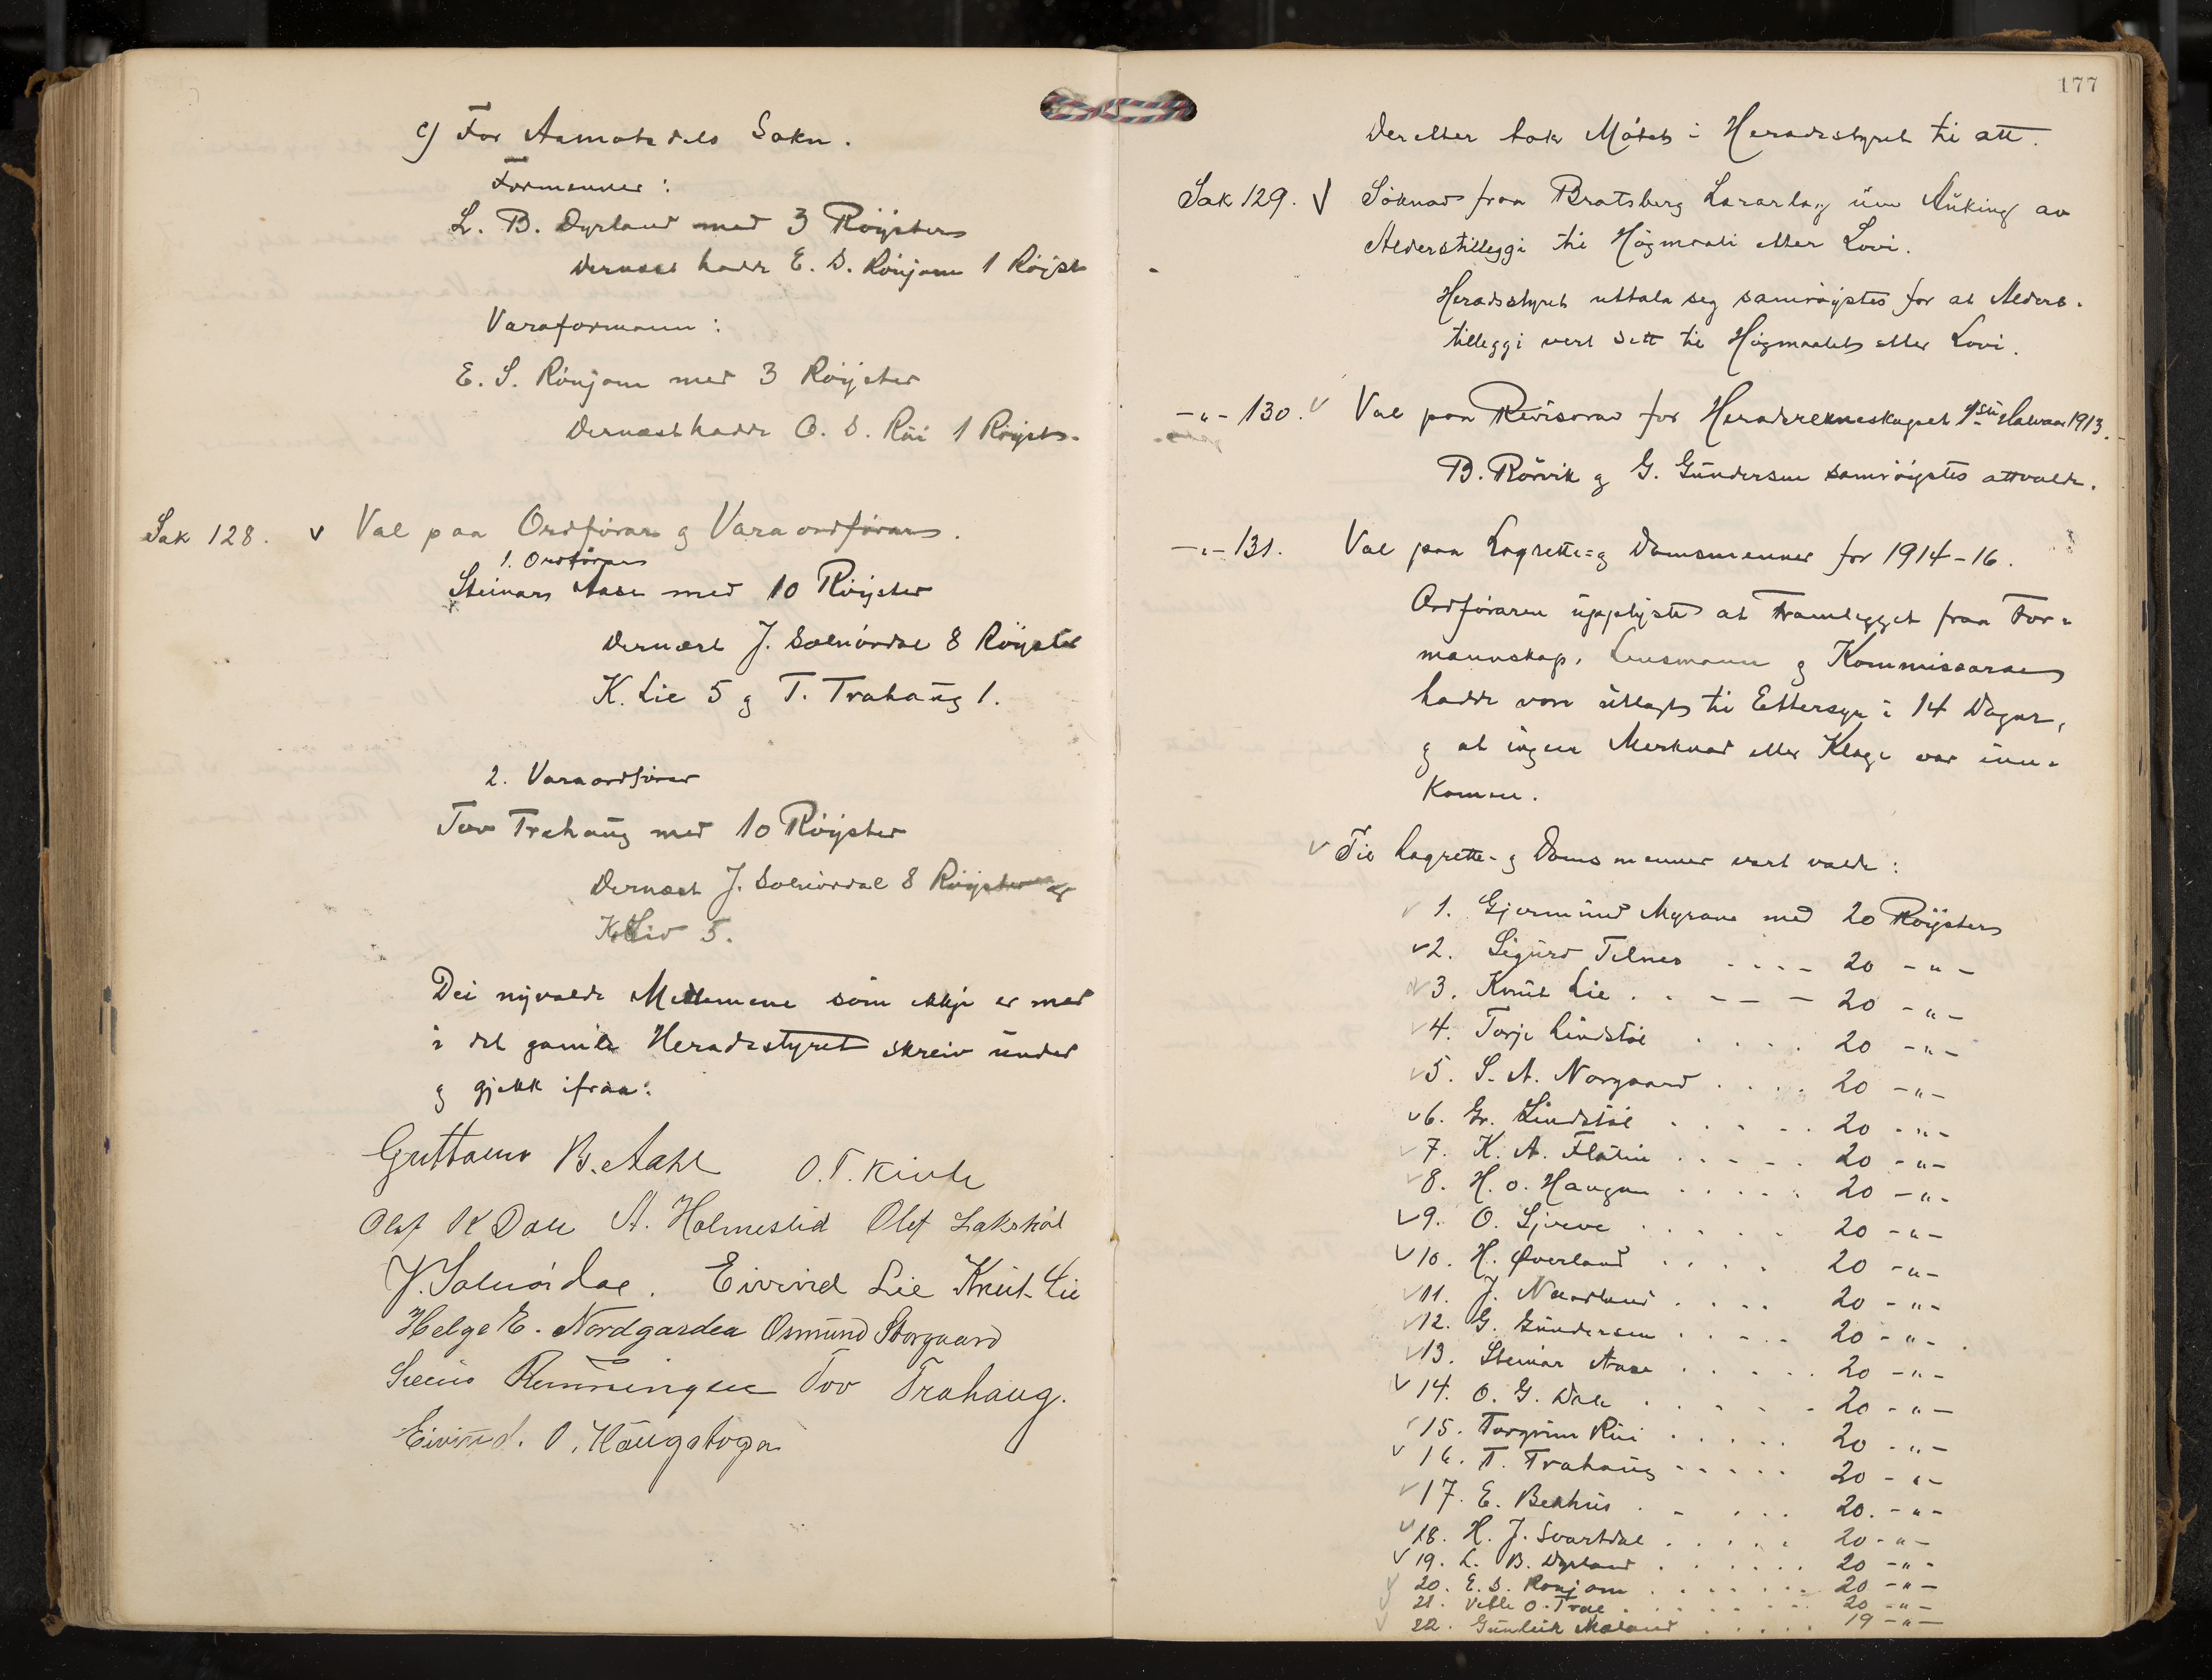 c) For Aamotsdals Sokn.
Formenner:
L. B. Dyrland med 3 Röyster
Dernæst hadde E. S. Rönjom 1 Röyst
Varaformann:
E. S. Rönjom med 3 Röyster
Dernæst hadde O. S. Rui 1 Röyst.
Sak 128. v Val paa Ordförar og Varaordförar.
1. Ordförar
Steinar Aase med 10 Röyster
Dernæst J. Solnördal 8 Röyster
K. Lie 5 og T. Trahaug 1.
2. Varaordförar
Tov Trahaug med 10 Röyster
Dernæst J. Solnördal 8 Röyster og
K. Lie 5.
Dei nyvalde Medlemene som ikkje er med
i det gamle Heradsstyret skreiv under
og gjekk ifraa:
Guttorm B. Aahl O. T. Kivle
Olaf K Dale A. Holmeslid Olef Lakskål
J. Solnördal. Eivind Lie Knut Lie
Helge E. Nordgarden Osmund Storgaard
Svein Rminingen Tov Trahaug.
Eivind. O. Haugstoga
177
Deretter tok Mötet i Heradsstyret til att.
Sak 129. V Söknad fraa Bratsberg Lærarlag um Auking av
Alderstilleggi til Högmaali etter Lovi.
Heradsstyret uttala seg samröystes for at Alders-
tilleggi vert sett til Högmaalet etter Lovi.
-"- 130. v Val paa Revisorar for Heradsrekneskapet 1ste Halvaar 1913.
B. Rörvik og G. Gundersen samröystes attvalde.
-"- 131. Val paa Lagrette- og Domsmenner for 1914-16.
Ordföraren upplyste at Framlegget fraa For-
mannskap, Lensmann og Kommissarar
hadde vore utlagt til Ettersyn i 14 Dagar,
og at ingen Merknad eller Klage var inn-
komen.
v Til Lagrette- og Domsmenner vart valde:
v 1. Gjermund Myrane med 20 Röyster
v 2. Sigurd Telnes .... 20 -"-
v 3. Knut Lie .... 20 -"-
v 4. Torje Lindstöl .... 20 -"-
v 5. S. A. Norgaard .... 20 -"-
v 6. Gr. Lindstöl .... 20 -"-
v 7. K. A. Flatin .... 20 -"-
v 8. H. O. Haugan .... 20 -"-
v 9. O. Ljosve .... 20 -"-
v 10. H. Øverland .... 20 -"-
v 11. J. Nordland .... 20 -"-
v 12. G. Gundersen .... 20 -"-
v 13. Steinar Aase .... 20 -"-
v 14. O. G. Dale .... 20 -"-
v 15. Torgrim Rui .... 20 -"-
v 16. T. Trahaug .... 20 -"-
v 17. E. Bekhus .... 20 -"-
v 18. H. J. Svartdal .... 20 -"-
v 19. L. B. Dyrland .... 20 -"-
v 20. E. S. Ronjom .... 20 -"-
v 21. Vetle O. Trae .... 20 -"-
v 22. Gunleik Mæland .... 19 -"-